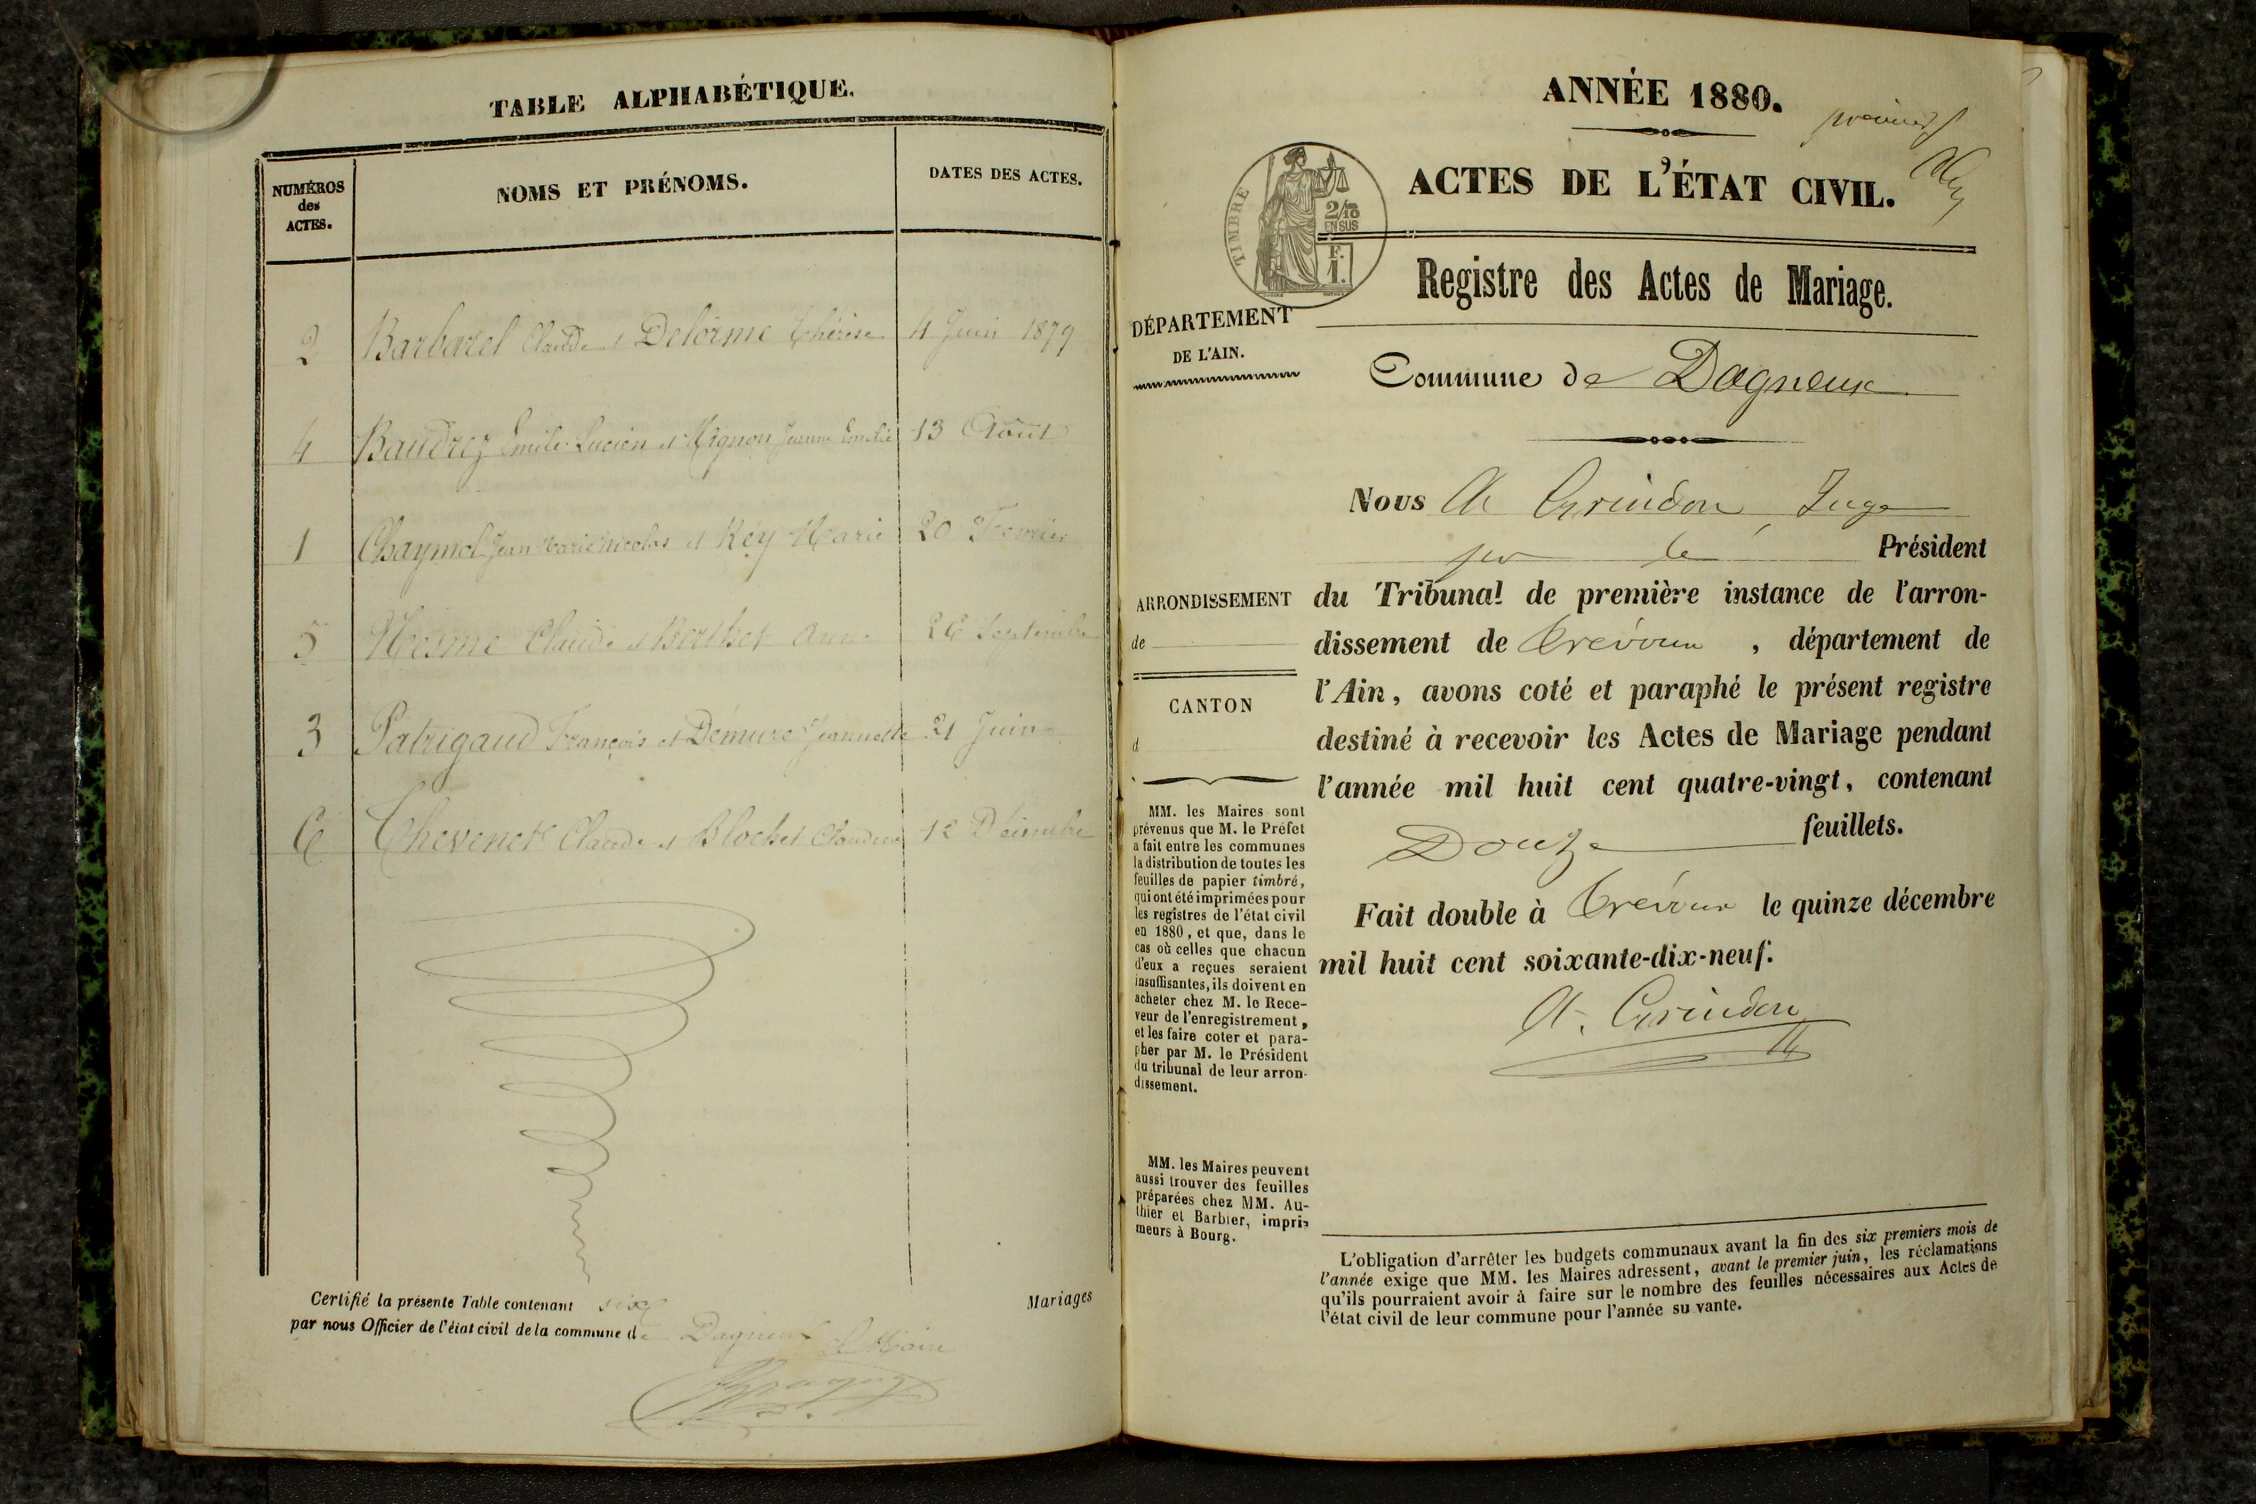 TABLE ALPHABÉTIQUE.
NUMÉROS
des
ACTES.
NOMS ET PRÉNOMS.
DATES DES ACTES.
2 Barbarel Claude et Delorme Thérèse 4 Juin 1879
4 Baudrez Emile Lucien et Mignon Jeanne Emélie 13 Août
1 Chaymol Jean Marie Nicolas et Rey Marie 20 Fevrier
5 Mesme Claude et Berthet Anne 26 Septembre
3 Patrigaud François et Démure Jeannette 21 Juin
6 Thevenet Claude et Blochet Claudine 12 Décembre
Certifié la présente Table contenant six Mariages
par nous Officier de l'état civil de la commune de Dagneux le Maire
ANNÉE 1880.
premier
ACTES DE L'ÉTAT CIVIL.
TIMBRE
2/10
EN SUS
F.
1.
Registre des Actes de Mariage.
DÉPARTEMENT
DE L'AIN.
Commune de Dagneux
Nous A Grindon, Juge
pr le Président
du Tribunal de première instance de l'arron-
dissement de Trévoux, département de
l'Ain, avons coté et paraphé le présent registre
destiné à recevoir les Actes de Mariage pendant
l'année mil huit cent quatre-vingt, contenant
Douze feuillets.
Fait double à Trévoux le quinze décembre
mil huit cent soixante-dix-neuf.
A. Grindon
ARRONDISSEMENT
de
CANTON
d
MM. les Maires sont
prévenus que M. le Préfet
a fait entre les communes
la distribution de toutes les
feuilles de papier timbré,
qui ont été imprimées pour
les registres de l'état civil
en 1880, et que, dans le
cas où celles que chacun
d'eux a reçues seraient
insuffisantes, ils doivent en
acheter chez M. le Rece-
veur de l'enregistrement,
et les faire coter et para-
pher par M. le Président
du tribunal de leur arron-
dissement.
MM. les Maires peuvent
aussi trouver des feuilles
préparées chez MM. Au-
thier et Barbier, impri-
meurs à Bourg.
L'obligation d'arrêter les budgets communaux avant la fin des six premiers mois de
l'année exige que MM. les Maires adressent, avant le premier juin, les réclamations
qu'ils pourraient avoir à faire sur le nombre des feuilles nécessaires aux Actes de
l'état civil de leur commune pour l'année su vante.